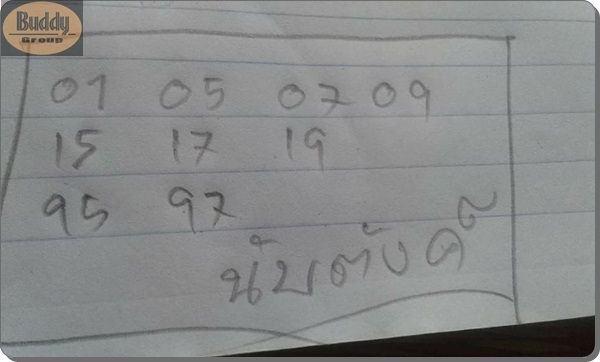 Buddy
Group
01 05 07 09
15 17 19
95 97
นับตังค์